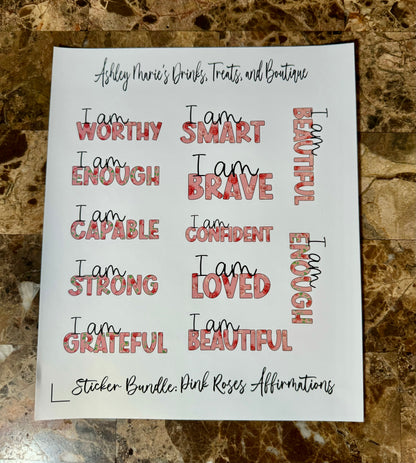 Ashley Marie's Drinks, Treats, and Boutique
I am
WORTHY
I am
SMART
I am
BEAUTIFUL
I am
ENOUGH
I am
BRAVE
I am
CAPABLE
I am
CONFIDENT
I am
ENOUGH
I am
STRONG
I am
LOVED
I am
GRATEFUL
I am
BEAUTIFUL
Sticker Bundle: Pink Roses Affirmations